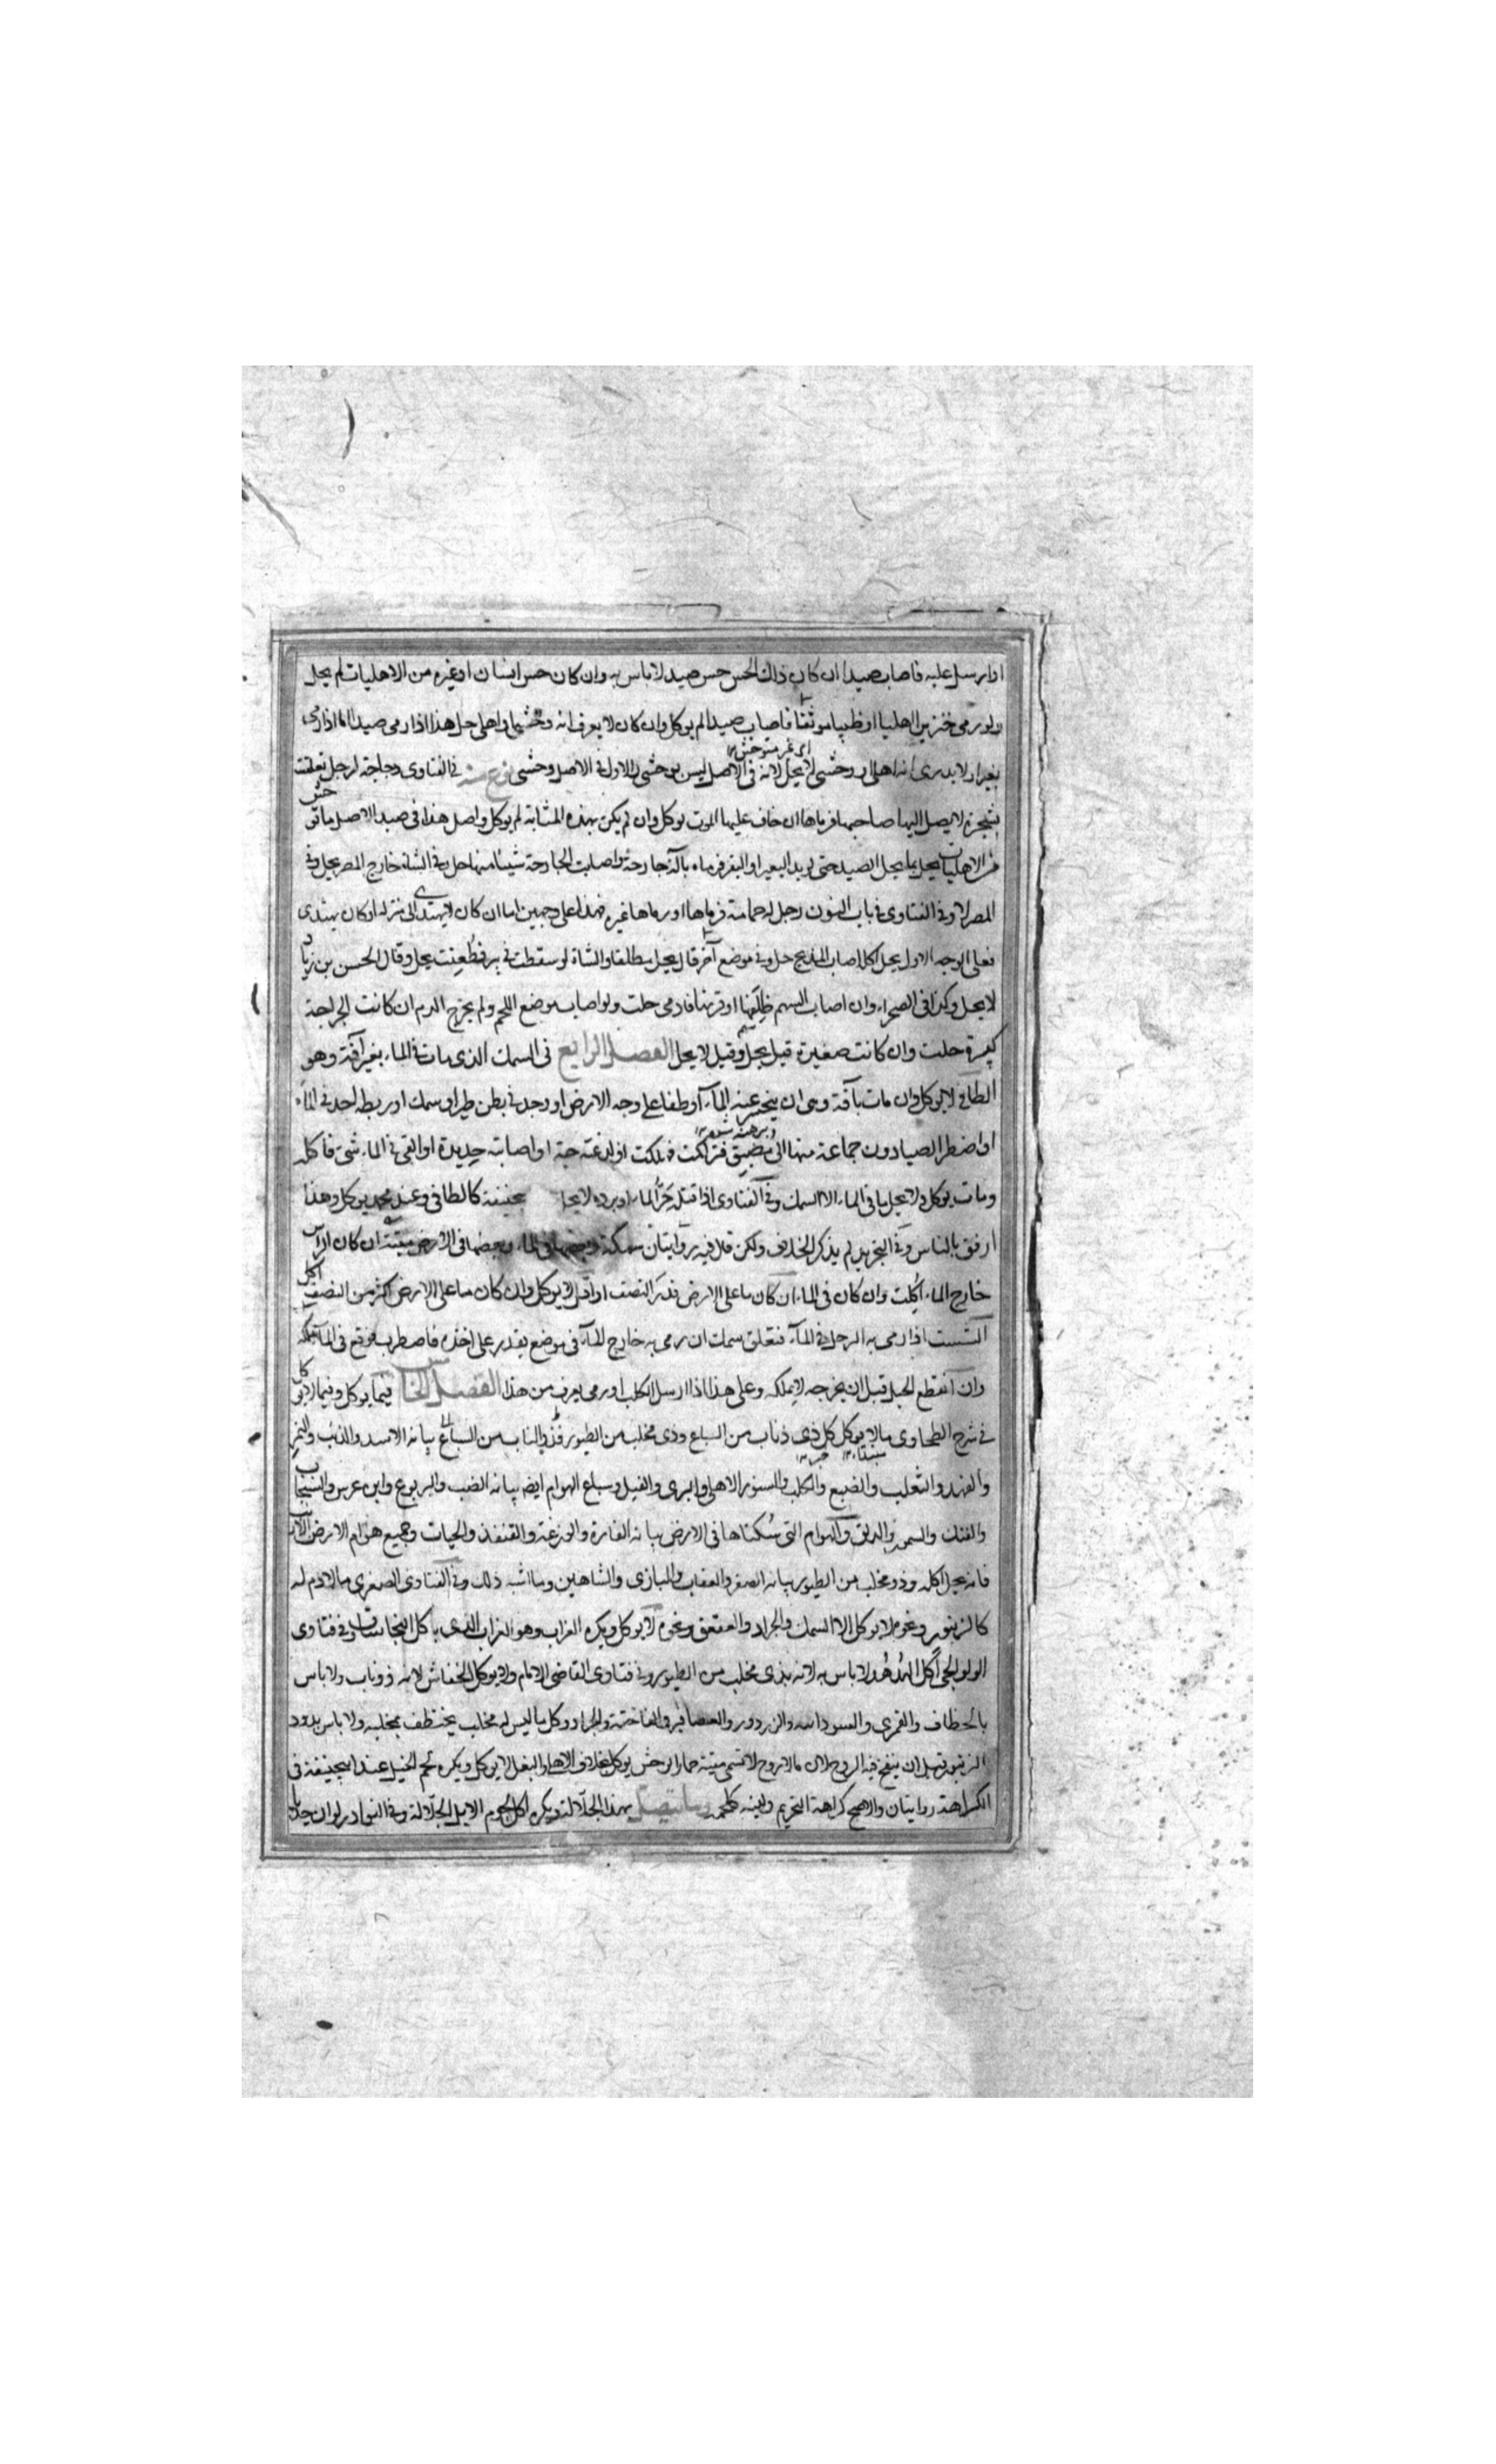 او ارسل عليه فاصاب صيدا ان كان ذلك الحس حس صيد لا باس به وان كان حس انسان او غيره من الاهليات لم يحل
ولو رمى خنزيرا اهليا او ظبيا موثقا فاصاب صيدا لم يوكل وان كان لا يعرف انه وحشي او اهلي حل هذا اذا رمى صيدا اما اذا رمى
بعيرا ولا يدرى انه اهلي او وحشي لا يحل لانه في الاصل ليس بوحشي والاول في الاصل وحشي نوع منه في الفتاوى دجاجة لرجل تعلقت
بشجرة لا يصل اليها صاحبها فرماها ان خاف عليها الموت يوكل وان لم يكن بهذه المثابة لم يوكل واصل هذا في صيد الاصل ما توحش
من الاهليات يحل بما يحل الصيد حتى لو ند البعير او البقر فرماه بالة جارحة واصابت الجارحة شيئا منها حل وفي الشاة خارج المصر يحل وفي
المصر لا وفي الفتاوى في باب النون رجل له حمامة فرماها او رماها غيره فهذا على وجهين اما ان كان لا يهتدى الى منزله او كان يهتدى
فعلى الوجه الاول يحل اكله اصاب المذبح حل وفي موضع آخر قال يحل مطلقا والشاة لو سقطت في بير فطُعِنت يحل وقال الحسن بن زياد
لا يحل وكذا في الصحراء وان اصاب السهم ظِلفها او قرنها فادمى حلت ولو اصاب موضع اللحم ولم يخرج الدم ان كانت الجراحة
كبيرة حلت وان كانت صغيرة قيل يحل وقيل لا يحل الفصل الرابع في السمك الذى مات في الماء بغير آفة وهو
الطافي لا يوكل وان مات بآفة وهى ان ينحسر عنه الماء او طفا على وجه الارض او وجد في بطن طير او سمك او ربطه احد في الماء
او اضطر الصيادون جماعة منها الى مضيق فتراكمت فهلكت او لدغته حية او اصابته حديدة او القي في الماء شيء فاكله
ومات يوكل ولا يحل ما في الماء الا السمك وفي الفتاوى اذا قتله حَرّ الماء او برده لا يحل بحنيفة كالطافي وعند محمد يوكل وهذا
ارفق بالناس وفي التجريد لم يذكر الخلاف ولكن قال فيه روايتان سمكة وبعضها في الماء وبعضها في الارض ميتة ان كان الراس
خارج الماء اُكِلت وان كان في الماء ان كان ما على الارض قدر النصف او اقل لا يوكل وان كان ما على الارض اكثر من النصف اكل
الشست اذا رمى به الرجل في الماء فتعلق سمك ان رمى به خارج الماء في موضع يقدر على اخذه فاضطرب فوقع في الماء ملكه
وان انقطع الحبل قبل ان يخرجه لا يملكه وعلى هذا اذا ارسل الكلب او رمى يعرف من هذا الفصل الخامس فيما يوكل وفيما لا يوكل
في شرح الطحاوى ما لا يوكل كل ذى ناب من السباع وذى مخلب من الطيور فذو الناب من السباع بيانه الاسد والذئب والنمر
والفهد والثعلب والضبع والكلب والسنور الاهلي والبرى والفيل وسباع الهوام ايضا بيانه الضب واليربوع وابن عرس والسنجاب
والفنك والسمور والدلق والهوام التي سُكناها في الارض بيانه الفارة والوزغة والقنفذ والحيات وجميع هوام الارض الا الارنب
فانه يحل اكله وذو مخلب من الطيور بيانه الصقر والعقاب والبازى والشاهين وما اشبه ذلك وفي الفتاوى الصغرى ما لا دم له
كالزنبور ونحوه لا يوكل الا السمك والجراد والعقعق ونحوه لا يوكل ويكره الغراب وهو الغراب الذى ياكل النجاسات وفي فتاوى
الولوالجي اكل الهُدهُد لا باس به لانه بذى مخلب من الطيور وفي فتاوى القاضي الامام ولا يوكل الخفاش لانه ذو ناب ولا باس
بالخطاف والقمرى والسودانيه والزرزور والعصافير والفاختة والجراد وكل ما ليس له مخلب يختطف بمخلبه ولا باس بدود
الزنبور قبل ان ينفخ فيه الروح لان ما لا روح لا تسمى ميتة حمار الوحش يوكل بخلاف الاهلي والبغل لا يوكل ويكره لحم الخيل عند ابيحنيفة في
الكراهة روايتان والاصح كراهة التحريم ولبنه كلحمه وما يتصل بهذا الجلّالة ويكره اكل لحوم الابل الجلّالة وفي النوادر لو ان جديا